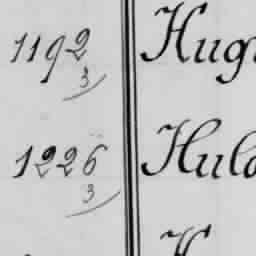 1192 Hug
3
1226 Hul
3